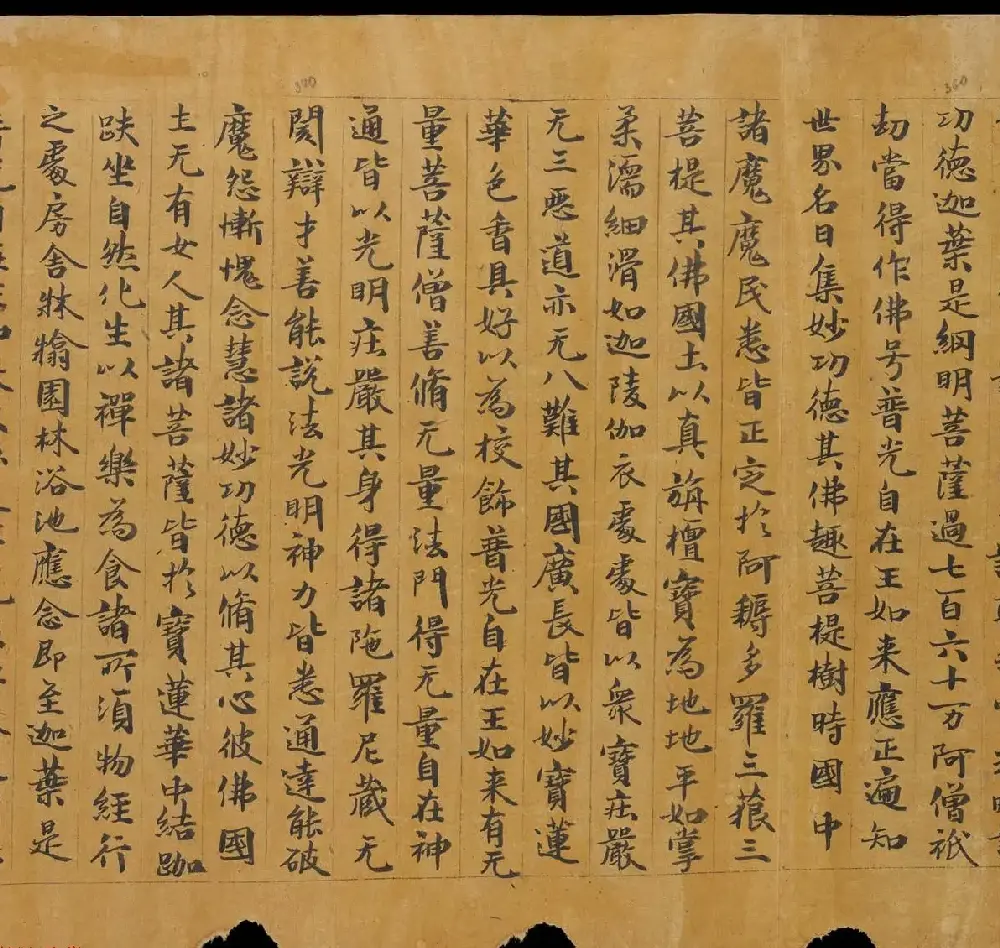 360
功德迦葉是網明菩薩過七百六十万阿僧祇
劫當得作佛号普光自在王如来應正遍知
世界名曰集妙功德其佛趣菩提樹時國中
諸魔魔民悉皆正定於阿耨多羅三藐三
菩提其佛國土以真旃檀寶為地地平如掌
柔濡細滑如迦陵伽衣處處皆以衆寶庄嚴
无三惡道亦无八難其國廣長皆以妙寶蓮
華色香具好以為校餝普光自在王如来有无
量菩薩僧善脩无量法門得无量自在神
通皆以光明庄嚴其身得諸陁羅尼藏无
370
閡辯才善能說法光明神力皆悉通達能破
魔怨慚愧念慧諸妙功德以脩其心彼佛國
土无有女人其諸菩薩皆於寶蓮華中結跏
趺坐自然化生以禪樂為食諸所須物經行
之處房舍牀榻園林浴池應念即至迦葉是